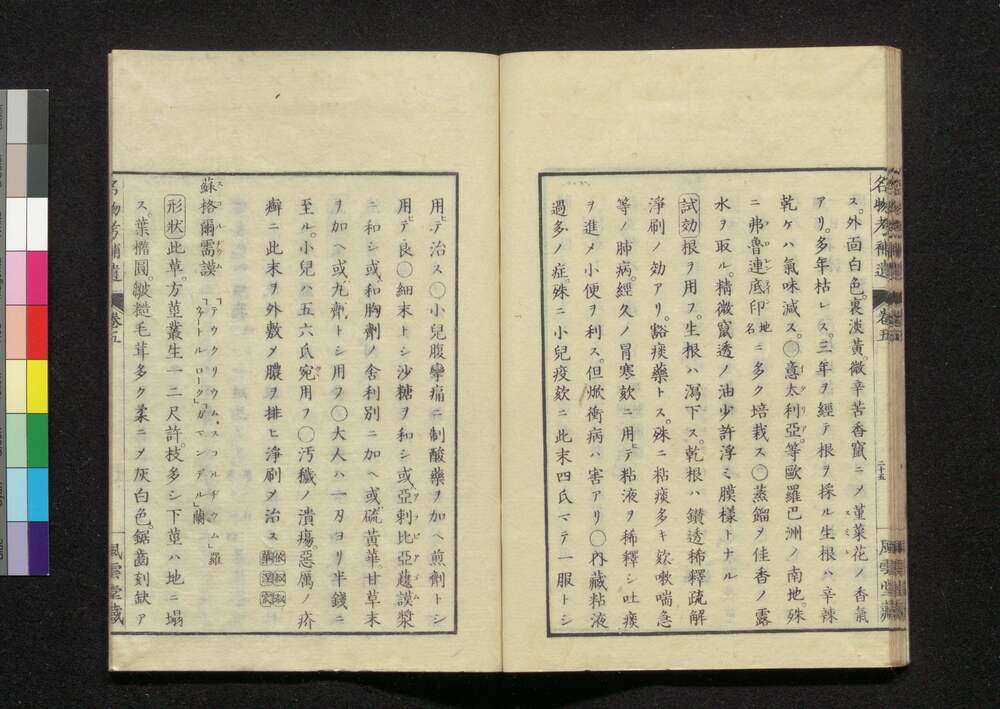 ス。外面白色。裏淡黃。微辛苦香竄ニメ菫菜花ノ香氣
アリ。多年枯レス。三年ヲ經テ根ヲ採ル生根ハ辛辣
乾ケハ氣味減ス。〇意太利亞。等歐羅巴洲ノ南地。殊
ニ弗魯連底印地名ニ多ク培栽ス〇蒸餾ヲ佳香ノ露
水ヲ取ル。精微竄透ノ油少許浮ミ膜樣トナル
試効 根ヲ用フ。生根ハ瀉下ス。乾根ハ鑽透稀釋疏解
淨刷ノ効アリ。豁痰藥トス。殊ニ粘痰多キ欬嗽喘急
等ノ肺病。經久ノ冒寒欬ニ用ヒテ粘液ヲ稀釋シ吐痰
ヲ進メ小便ヲ利ス。但焮衝病ハ害アリ〇內藏粘液
過多ノ症。殊ニ小兒疫欬ニ此末四氏マテ一服トシ
名物考補遺
卷五
二十五
風雲堂藏
用ヒテ治ス〇小兒腹攣痛ニ制酸藥ヲ加ヘ煎劑トシ
用ヒテ良〇細末トシ沙糖ヲ和シ或亞剌比亞護謨漿
ニ和シ或和胸劑ノ舍利別ニ加ヘ或硫黃華。甘草末
ヲ加ヘ或丸劑トシ用フ〇大人ハ一刃ヨリ半錢ニ
至ル。小兒ハ五六氏宛用フ〇汚穢ノ潰瘍惡厲ノ疥
癬ニ此末ヲ外敷メ膿ヲ排ヒ淨刷メ治ス
蘇格爾需謨 「テウクリウム。スコルヂウム」羅
「ネートル ローク」「ガマンデル」蘭
形狀 此草。方莖叢生一二尺許。枝多シ下莖ハ地ニ塌
ス。葉橢圓。皺糙毛茸多ク柔ニメ灰白色。鋸齒刻缺ア
名物考補遺
卷五
風雲堂藏